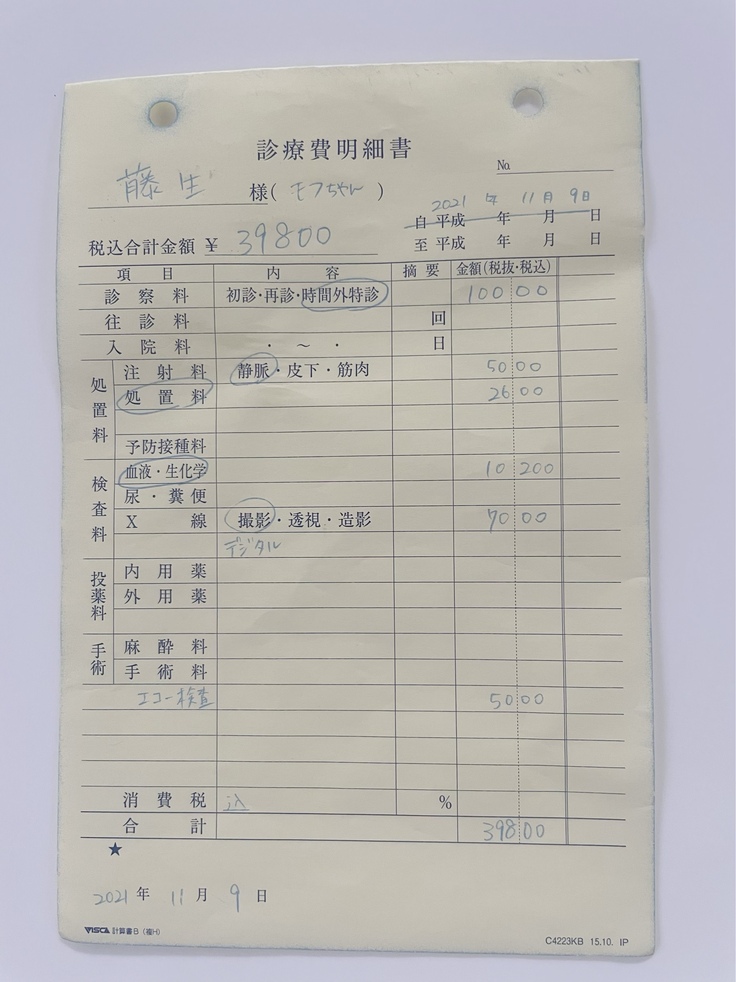 診療費明細書
No.
藤生 様(モフちゃん)
2021年 11月 9日
自 平成 年 月 日
税込合計金額 ¥ 39800
至 平成 年 月 日
項目 内容 摘要 金額(税抜・税込)
診察料 初診・再診・時間外特診 10000
往診料 回
入院料 ・ ~ ・ 日
処置料 注射料 静脈・皮下・筋肉 5000
処置料 2600
予防接種料
検査料 血液・生化学 10200
尿・糞便
X線 撮影・透視・造影 7000
デジタル
投薬料 内用薬
外用薬
手術 麻酔料
手術料
エコー検査 5000
消費税 込 %
合計 39800
★
2021年 11月 9日
VISCA 計算書B(複H)
C4223KB 15.10. IP